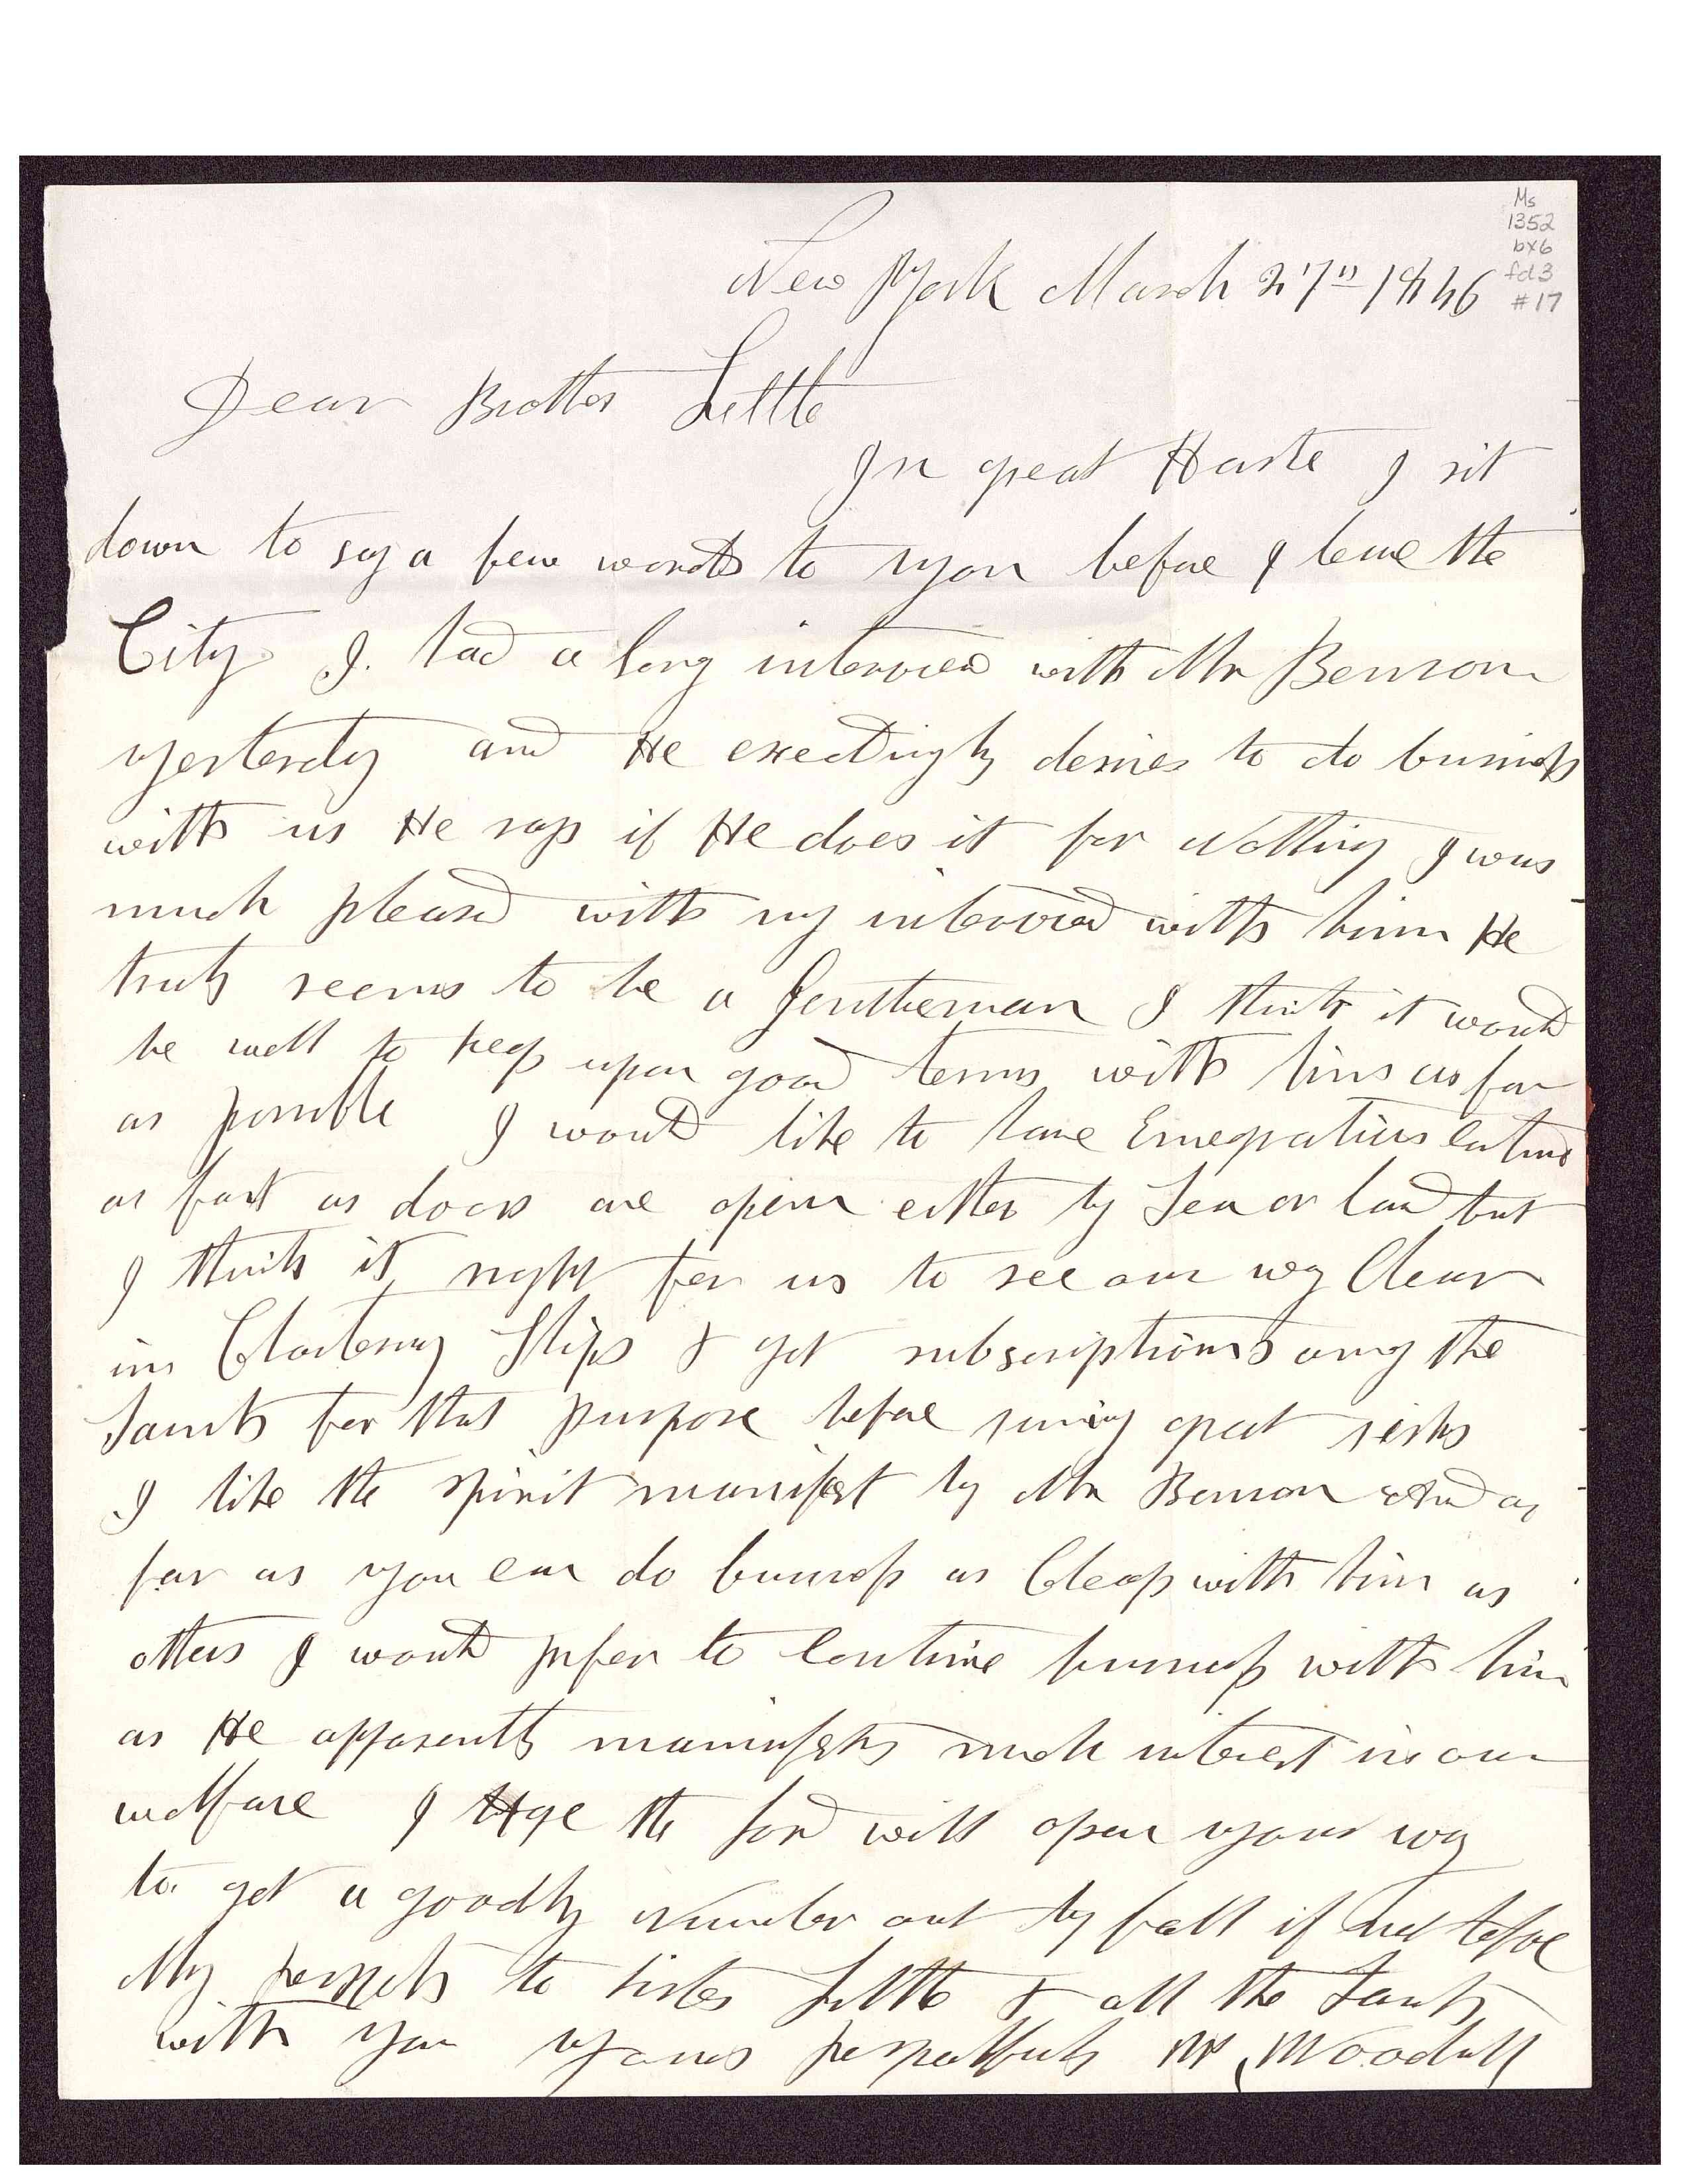 Ms
1352
bx6
fd3
#17
New York March 27th 1846
Dear Brother Little
In great Haste I sit
down to say a few words to you before I leave the
City. I had a long interview with Mr Benson
yesterday and He exceedingly desires to do business
with us He says if He does it for Nothing I was
much pleased with my interview with him He
truly seems to be a Gentleman I think it would
be well to keep upon good terms with him as far
as possible I would like to have Emegration continue
as fast as doors are open either by Sea or land but
I think it right for us to see our way Clear
in Chartering Ships & get subscriptions among the
Saints for that purpose before runing great risks
I like the spirit manifest by Mr Benson and as
far as you can do business as Cheap with him as
others I would prefer to continue business with him
as He apparently manifests much interest in our
welfare I Hope the Lord will open your way
to get a goodly Number out by fall if not before
My respects to sister Little & all the Saints
with you yours respectfully W. Woodruff